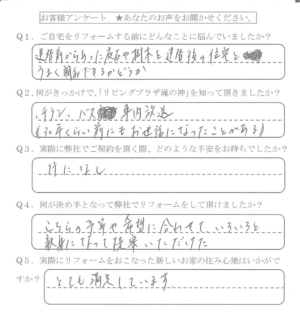 お客様アンケート ★あなたのお声をお聞かせください。
Q1、ご自宅をリフォームする前にどんなことに悩んでいましたか?
うまく
Q2、何がきっかけで、「リビングプラザ滝の神」を知って頂きましたか?
チラシ、バス 車内放送
(30年くらい前にもお世話になったことがある)
Q3、実際に弊社でご契約を頂く際、どのような不安をお持ちでしたか?
特になし
Q4、何が決め手となって弊社でリフォームをして頂けましたか?
こちらの予算や希望に合わせて、いろいろと
親身になって提案いただけた
Q5、実際にリフォームをおこなった新しいお家の住み心地はいかがで
すか?
とても満足しています